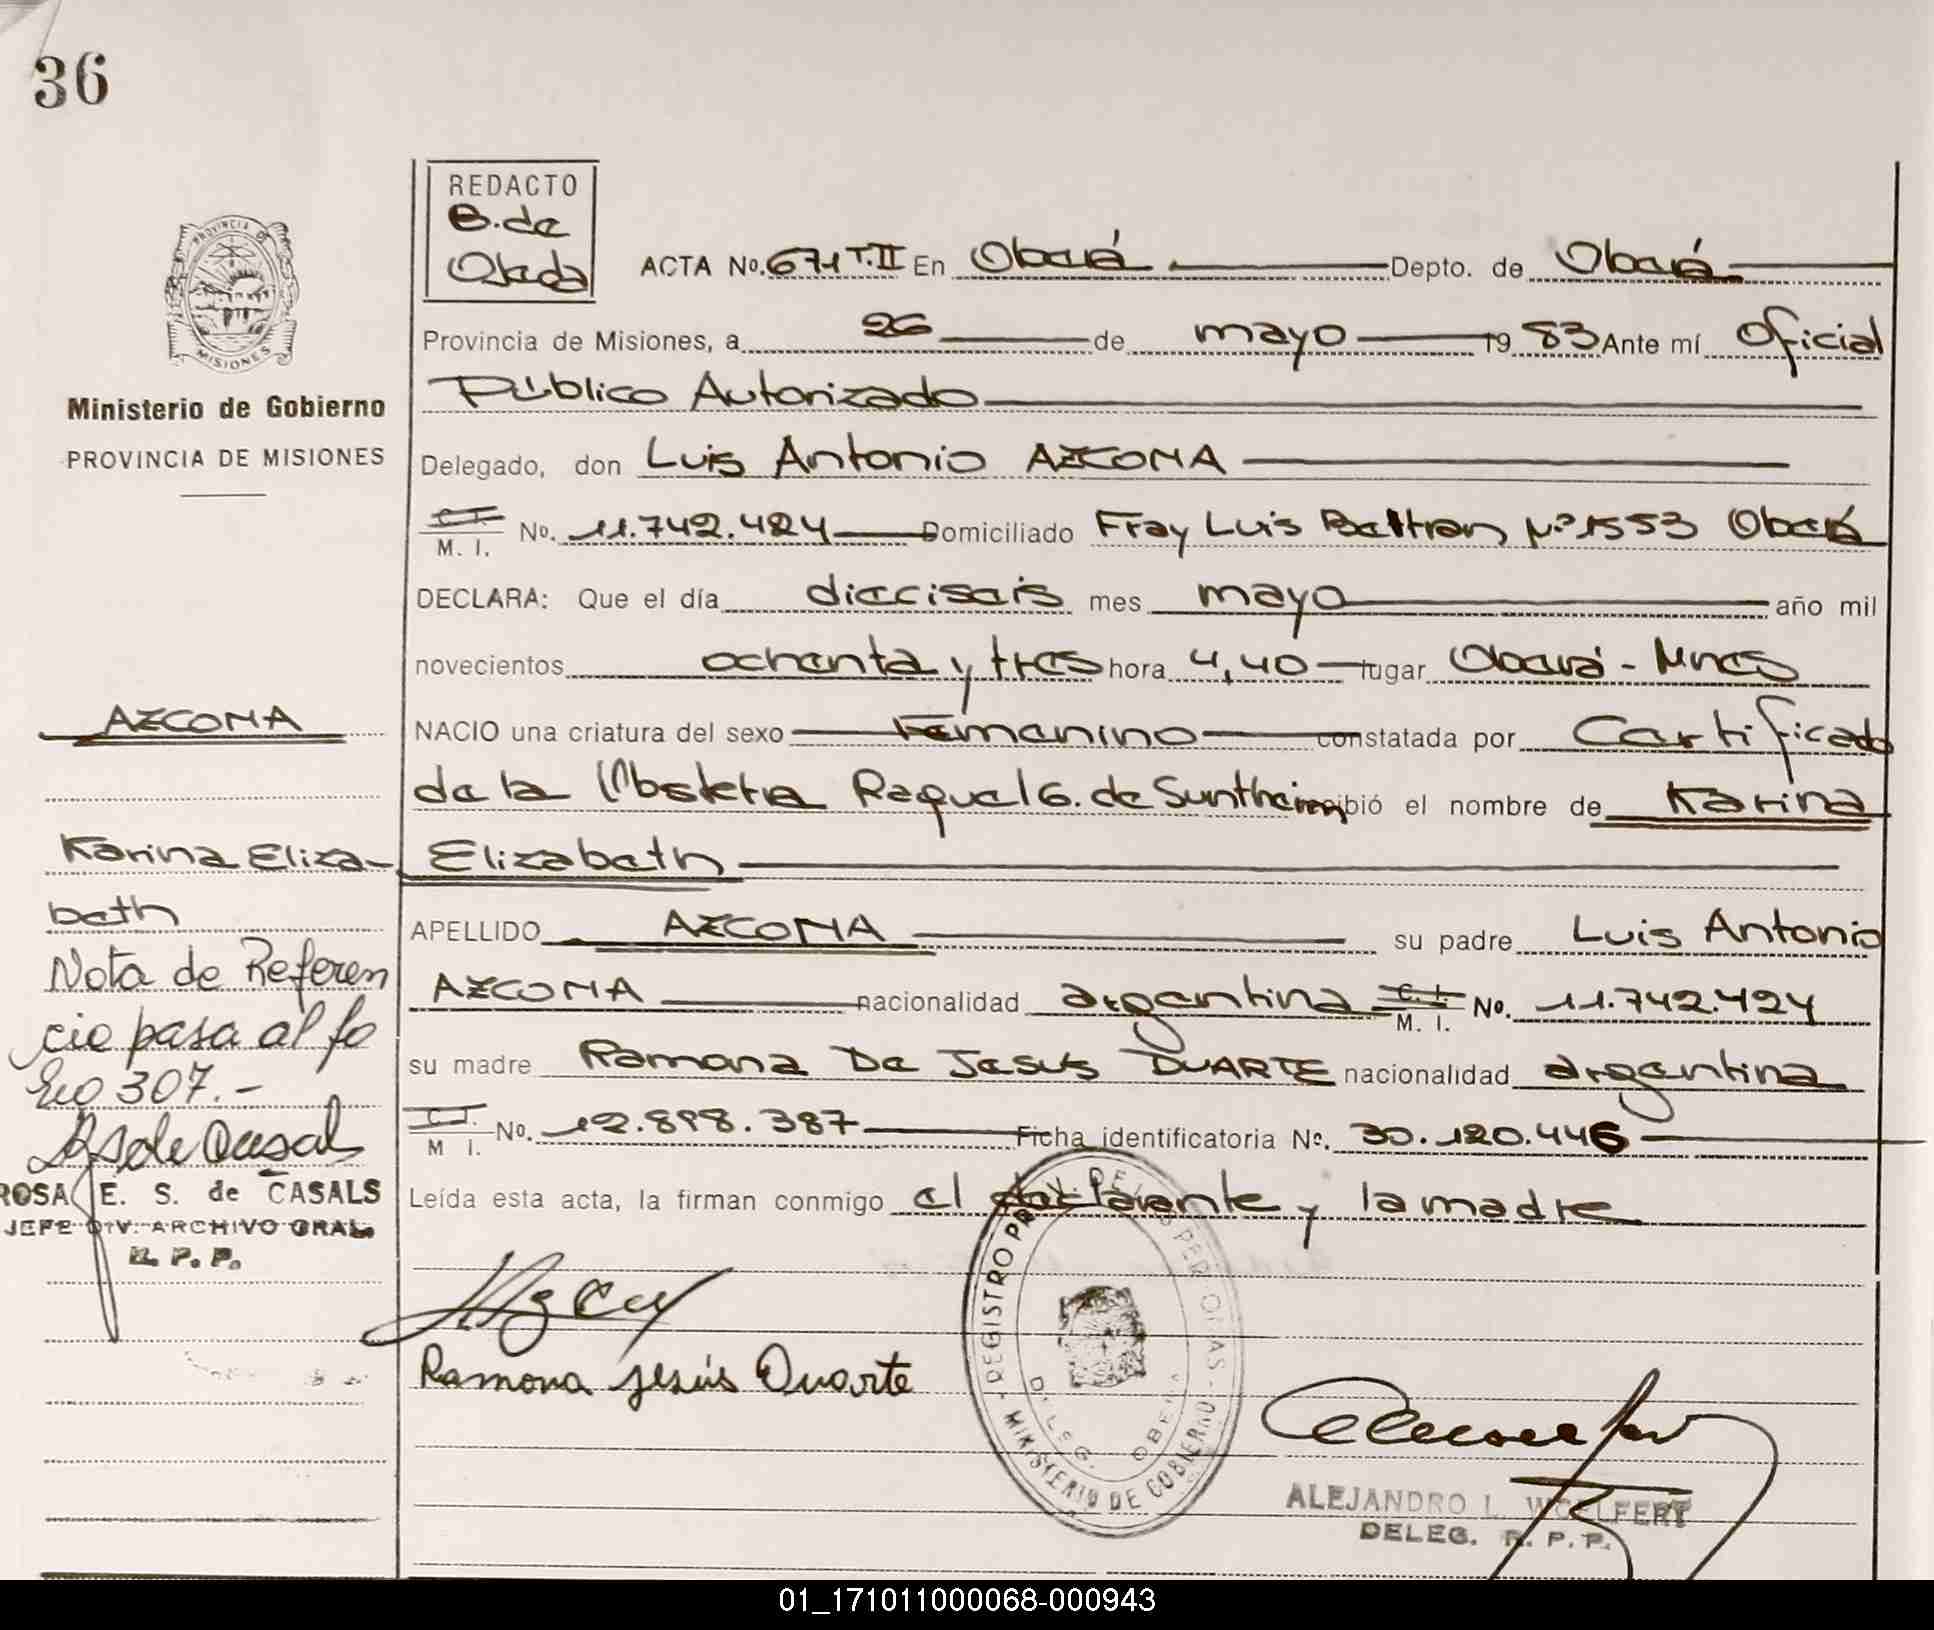 36
REDACTO
B. de
Ojeda
PROVINCIA DE
MISIONES
Ministerio de Gobierno
PROVINCIA DE MISIONES
ACTA No. 671 T.II En Oberá Depto. de Oberá
Provincia de Misiones, a 26 de mayo 19 83 Ante mí Oficial
Público Autorizado
Delegado, don Luis Antonio AZCONA
C.I.
M. I. No. 11.742.424 Domiciliado Fray Luis Beltran Nº 1553 Oberá
DECLARA: Que el día dieciseis mes mayo año mil
novecientos ochenta y tres hora 4,40 lugar Oberá - Mnes
NACIO una criatura del sexo Femenino constatada por Certificado
de la Obstetra Raquel G. de Suntheim recibió el nombre de Karina
Elizabeth
APELLIDO AZCONA su padre Luis Antonio
AZCONA nacionalidad argentina C.I. M. I. No. 11.742.424
su madre Ramona De Jesus DUARTE nacionalidad argentina
C.I.
M I. No. 12.898.387 Ficha identificatoria No. 30.120.446
Leída esta acta, la firman conmigo el declarante y la madre
AZCONA
Karina Eliza-
beth
Nota de Referen
cia pasa al fo
lio 307.-
ROSA E. S. de CASALS
JEFE DIV. ARCHIVO GRAL.
R. P. P.
Ramona Jesús Duarte
REGISTRO PROV. DE LAS PERSONAS
MINISTERIO DE GOBIERNO
DELEG. OBERA
ALEJANDRO L. WOELFERT
DELEG. R. P. P.
01_171011000068-000943